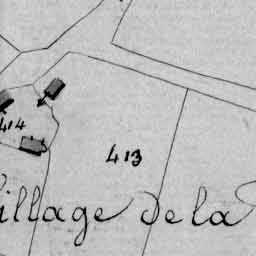 414
413
illage de la